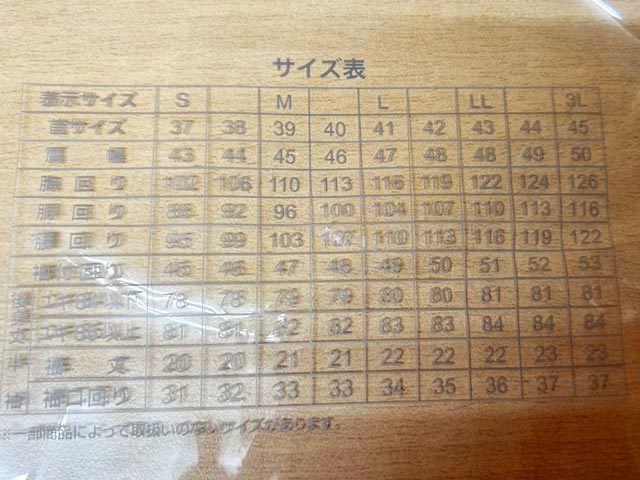 サイズ表
表示サイズ S M L LL 3L
首サイズ 37 38 39 40 41 42 43 44 45
肩幅 43 44 45 46 47 48 48 49 50
胸回り 102 106 110 113 116 119 122 124 126
胴回り 88 92 96 100 104 107 110 113 116
腰回り 95 99 103 107 110 113 116 119 122
袖付回り 45 46 47 48 49 50 51 52 53
78 78 79 79 80 80 81 81 81
81 81 82 82 83 83 84 84 84
袖丈 20 20 21 21 22 22 22 23 23
袖口回り 31 32 33 33 34 35 36 37 37
※一部商品によって取扱いのないサイズがあります。